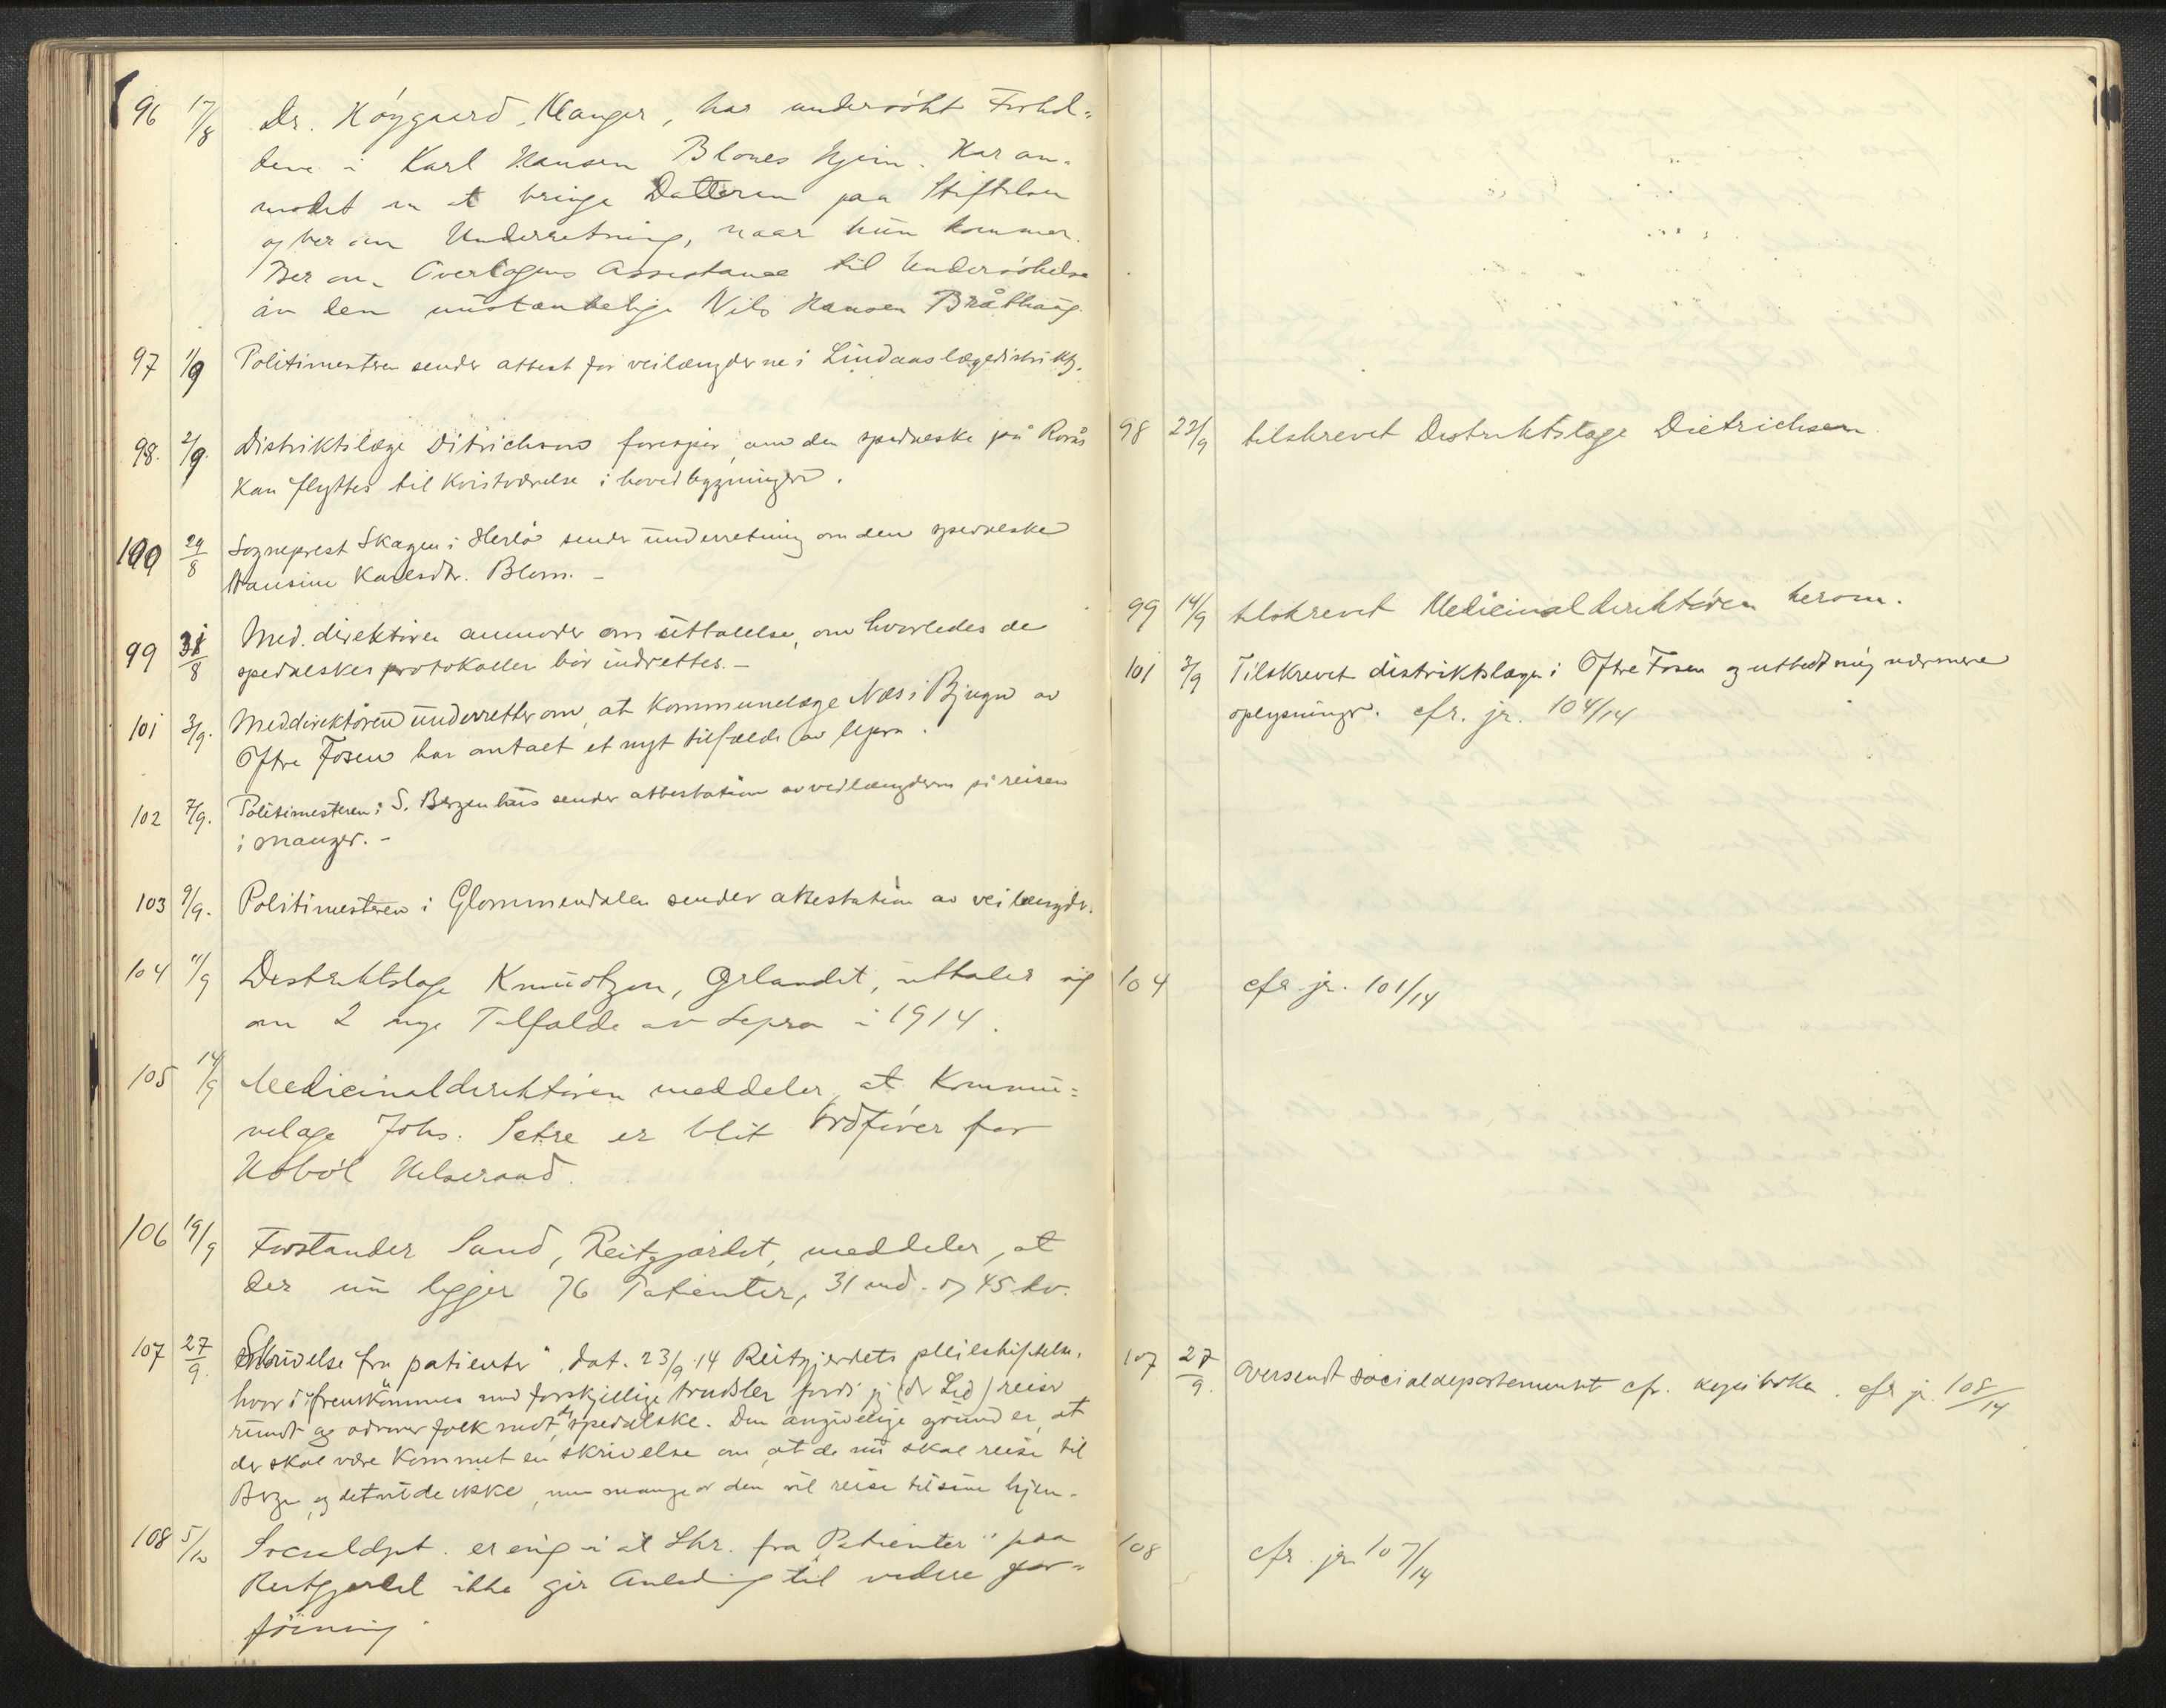 96 17/8 Dr. Höygaard, Manger, har undersökt Forhol-
dene i Karl Hansen Bloms Hjem. Har an-
modet om at bringe Datteren paa Stiftelsen
og ber om Underretning, naar hun kommer.
Ber om Overlægens Assistance til Undersökelse
av den mistænkelige Nils Hansen Bråthaug.
97 1/9 Politimesteren sender attest for veilængderne i Lindaas lægedistrikt.
98. 2/9. Distriktslæge Ditrichsen forespör, om den spedalske på Rorås
kan flyttes til Kvistværelse i hovedbygningen.
100 29/8 Sogneprest Skagen i Herlö sender underretning om den spedalske
Hansine Karlsdtr. Blom. -
99 31/8 Med. direktören anmoder om uttalelse, om hvorledes de
spedalskes protokoller bör indrettes. -
101 3/9. Meddirektören underretter om, at Kommunelæge Næs i Bjugn av
Ytre Fosen har antalt et nyt tilfælde av lepra.
102 7/9. Politimesteren i S. Bergenhus sender attestation av veilængderne på reisen
i Manger. -
103 9/9. Politimesteren i Glommendalen sender attestation av veilængde.
104 11/9 Distriktslæge Knudtzon, Ørlandet, uttaler sig
om 2 nye Tilfælde av Lepra i 1914.
105 14/9 Medicinaldirektören meddeler, at Kommu-
nelæge Johs. Setre er blit Ordförer for
Hoböl Helseraad.
106 19/9 Forstander Sand, Reitgjærdet, meddeler, at
der nu ligger 76 Patienter, 31 md. og 45 kv.
107 27/9. Skrivelse fra "patienter", dat. 23/9 14 Reitgjerdets pleiestiftelse,
hvori fremkommes med forskjellige trudsler fordi jeg (dr Lid) reiser
rundt og advarer folk mot de spedalske. Den angivelige grund er, at
der skal være kommet en skrivelse om, at de nu skal reise til
Bergen, og det vil de ikke, men mange av dem vil reise til sine hjem.
108 5/10 Socialdpt. er enig i at Skr. fra "Patienter" paa
Reitgjerdet ikke gir Anledning til videre For-
föining.
98 22/9 tilskrevet Distriktslæge Dietrichsen.
99 14/9 tilskrevet Medicinaldirektören herom.
101 3/9 Tilskrevet distriktslægen i Ytre Fosen og utbedt mig nærmere
oplysninger. cfr. jr. 104/14
104 cfr. jr. 101/14
107 27/9. Oversendt socialdepartementet cfr. kopiboken. cfr jr. 108/14
108 cfr. jr. 107/14